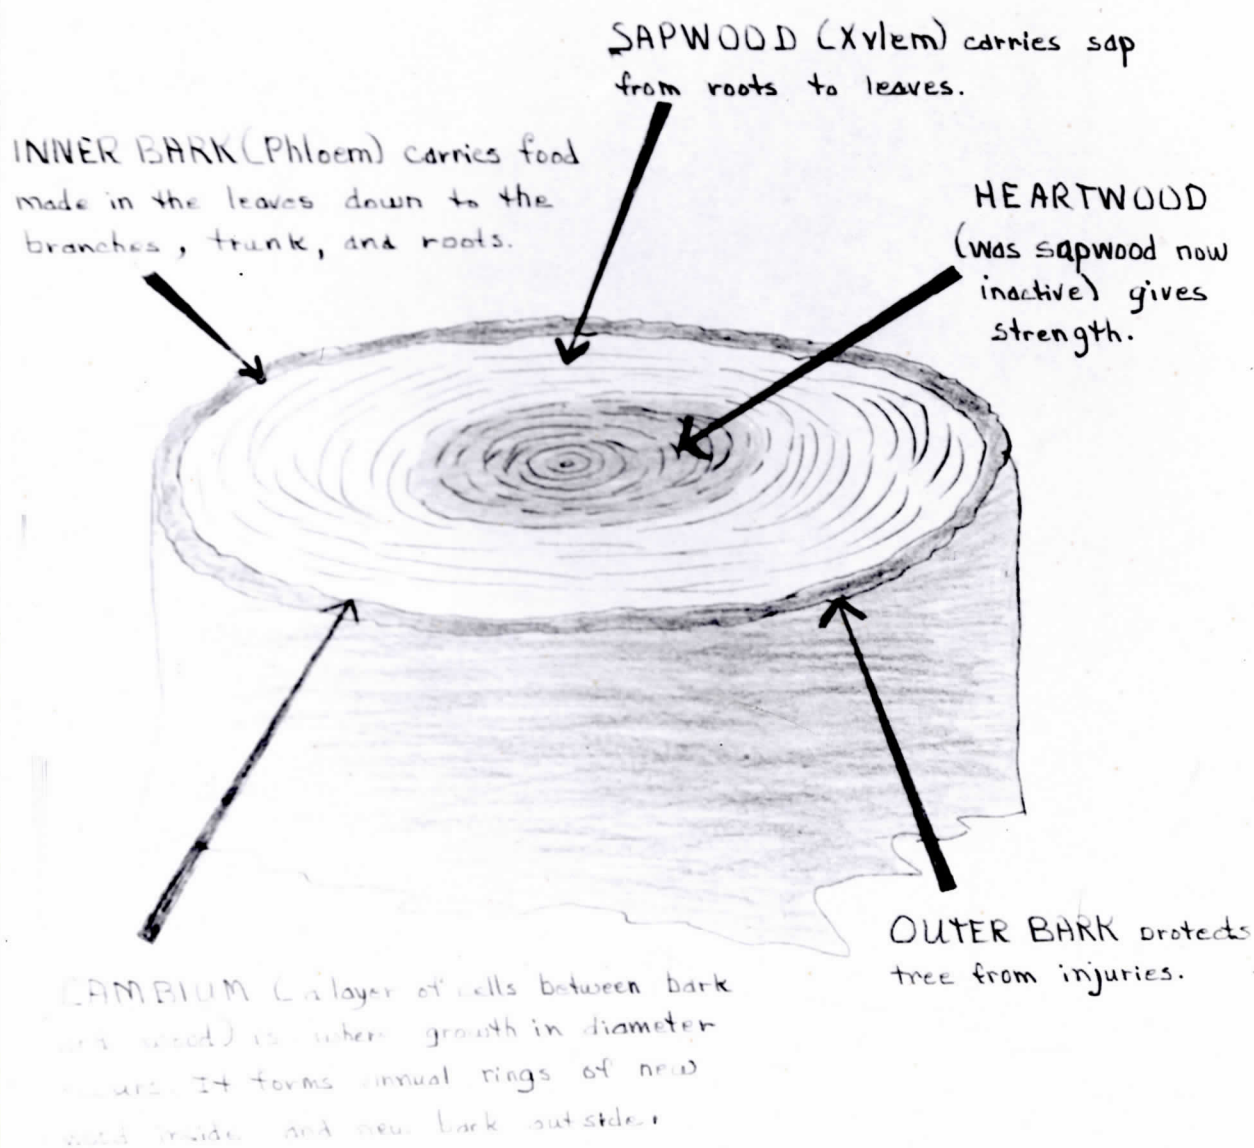 SAPWOOD (Xylem) carries sap
from roots to leaves.
INNER BARK (Phloem) carries food
made in the leaves down to the
branches, trunk, and roots.
HEARTWOOD
(was sapwood now
inactive) gives
strength.
OUTER BARK protects
tree from injuries.
CAMBIUM (a layer of cells between bark
and wood) is where growth in diameter
occurs. It forms annual rings of new
wood inside and new bark outside.